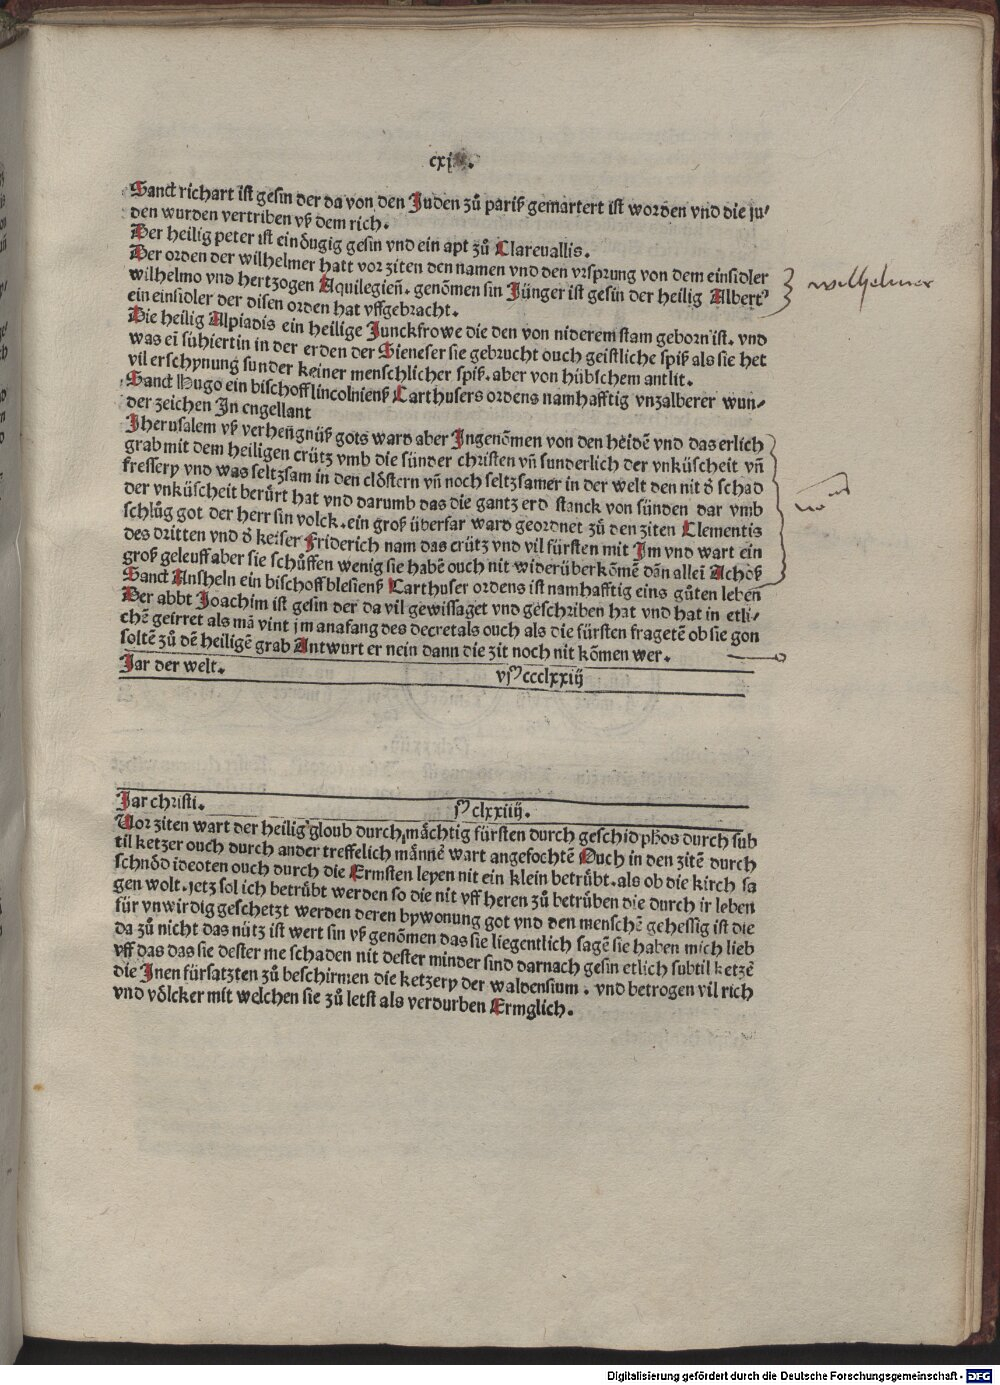 cxj
Sanct richart ist gesin der da von den Juden zů pariß gemartert ist worden vnd die ju⸗
den wurden vertriben vß dem rich.
Der heilig peter ist ein öugig gesin vnd ein apt zů Clareuallis.
Der orden der wilhelmer hatt vor ziten den namen vnd den vrsprung von dem einsidler
wilhelmo vnd hertzogen Aquilegien̄. genōmen sin Jünger ist gesin der heilig Albertꝰ
ein einsidler der disen orden hat vffgebracht.
wilhelmer
Die heilig Alpiadis ein heilige Junckfrowe die den von niderem stam geborn ist. vnd
was ei suhiertin in der erden der Sieneser sie gebrucht ouch geistliche spiß als sie het
vil erschynung sunder keiner menschlicher spiß. aber von hübschem antlit.
Sanct Hugo ein bischoff lincolnienß Carthusers ordens namhafftig vnzalberer wun⸗
der zeichen Jn engellant
Jherusalem vß verhengnüß gots ward aber Jngenōmen von den heidē vnd das erlich
grab mit dem heiligen crütz vmb die sünder christen vn̄ sunderlich der vnküscheit vn̄
fressery vnd was seltzsam in den clöstern vn̄ noch seltzsamer in der welt den nit d̕ schad
der vnküscheit berůrt hat vnd darumb das die gantz erd stanck von sünden dar vmb
schlůg got der herr sin volck. ein groß überfar ward geordnet zů den ziten Clementis
des dritten vnd d̕ keiser Friderich nam das crütz vnd vil fürsten mit Jm vnd wart ein
groß geleuff aber sie schůffen wenig sie habē ouch nit widerüberkōmē dān allei Achoß
Sanct Ansheln ein bischoff blesienß Carthuser ordens ist namhafftig eins gůten leben
Der abbt Joachim ist gesin der da vil gewissaget vnd geschriben hat vnd hat in etli⸗
chē geirret als mā vint jm anafang des decretals ouch als die fürsten fragetē ob sie gon
soltē zů dē heiligē grab Antwurt er nein dann die zit noch nit kōmen wer.
Jar der welt. vjᴹccclxxiij
Jar christi. jᴹclxxiiij.
Vor ziten wart der heilig gloub durch mächtig fürsten durch geschid phos durch sub
til ketzer ouch durch ander treffelich männe wart angefochtē Ouch in den zitē durch
schnöd ideoten ouch durch die Ermsten leyen nit ein klein betrůbt. als ob die kirch sa
gen wolt. jetz sol ich betrůbt werden so die nit vff heren zů betrüben die durch ir leben
für vnwirdig geschetzt werden deren bywonung got vnd den menschē gehessig ist die
da zů nicht das nütz ist wert sin vß genōmen das sie liegentlich sagē sie haben mich lieb
vff das das sie dester me schaden nit dester minder sind darnach gesin etlich subtil ketzē
die Jnen fürsatzten zů beschirmen die ketzery der waldensium. vnd betrogen vil rich
vnd völcker mit welchen sie zů letst als verdurben Ermglich.
Digitalisierung gefördert durch die Deutsche Forschungsgemeinschaft - DFG